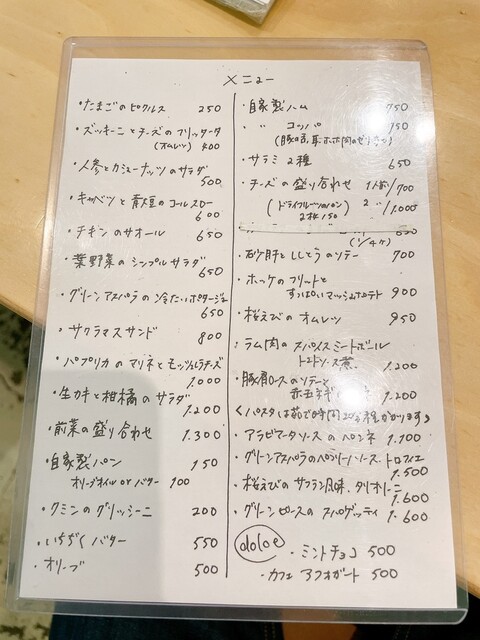 メニュー
・たまごのピクルス 250
・ズッキーニとチーズのフリッタータ
(オムレツ) 400
・人参とカシューナッツのサラダ
500
・キャベツと青大豆のコールスロー
600
・チキンのサオール 650
・葉野菜のシンプルサラダ
650
・グリーンアスパラの冷たいポタージュ
650
・サクラマスサンド 800
・パプリカのマリネとモッツァレラチーズ
1.000
・生カキと柑橘のサラダ
1.200
・前菜の盛り合わせ 1.300
・自家製パン 150
オリーブオイル or バター 100
・クミンのグリッシーニ 200
・いちぢくバター 550
・オリーブ 500
・自家製ハム 750
・〃 コッパ 750
・サラミ2種 650
・チーズの盛り合わせ 1人前/700
(ドライフルーツのパン 2枚150) 2〃/1.000
・砂肝とししとうのソテー 700
・ホッケのフリットと
すっぱいマッシュポテト 900
・桜えびのオムレツ 950
・ラム肉のスパイスミートボール
トマトソース煮 1.200
・豚肩ロースのソテーと
1.200
<パスタは茹で時間20分程かかります>
・アラビアータソースのペンネ 1.100
・グリーンアスパラのペペリーノソース トロフィエ
1.500
・桜えびのサフラン風味、タリオリーニ
1.600
・グリーンピースのスパゲッティ
1.600
dolce
・ミントチョコ 500
・カフェアフォガート 500